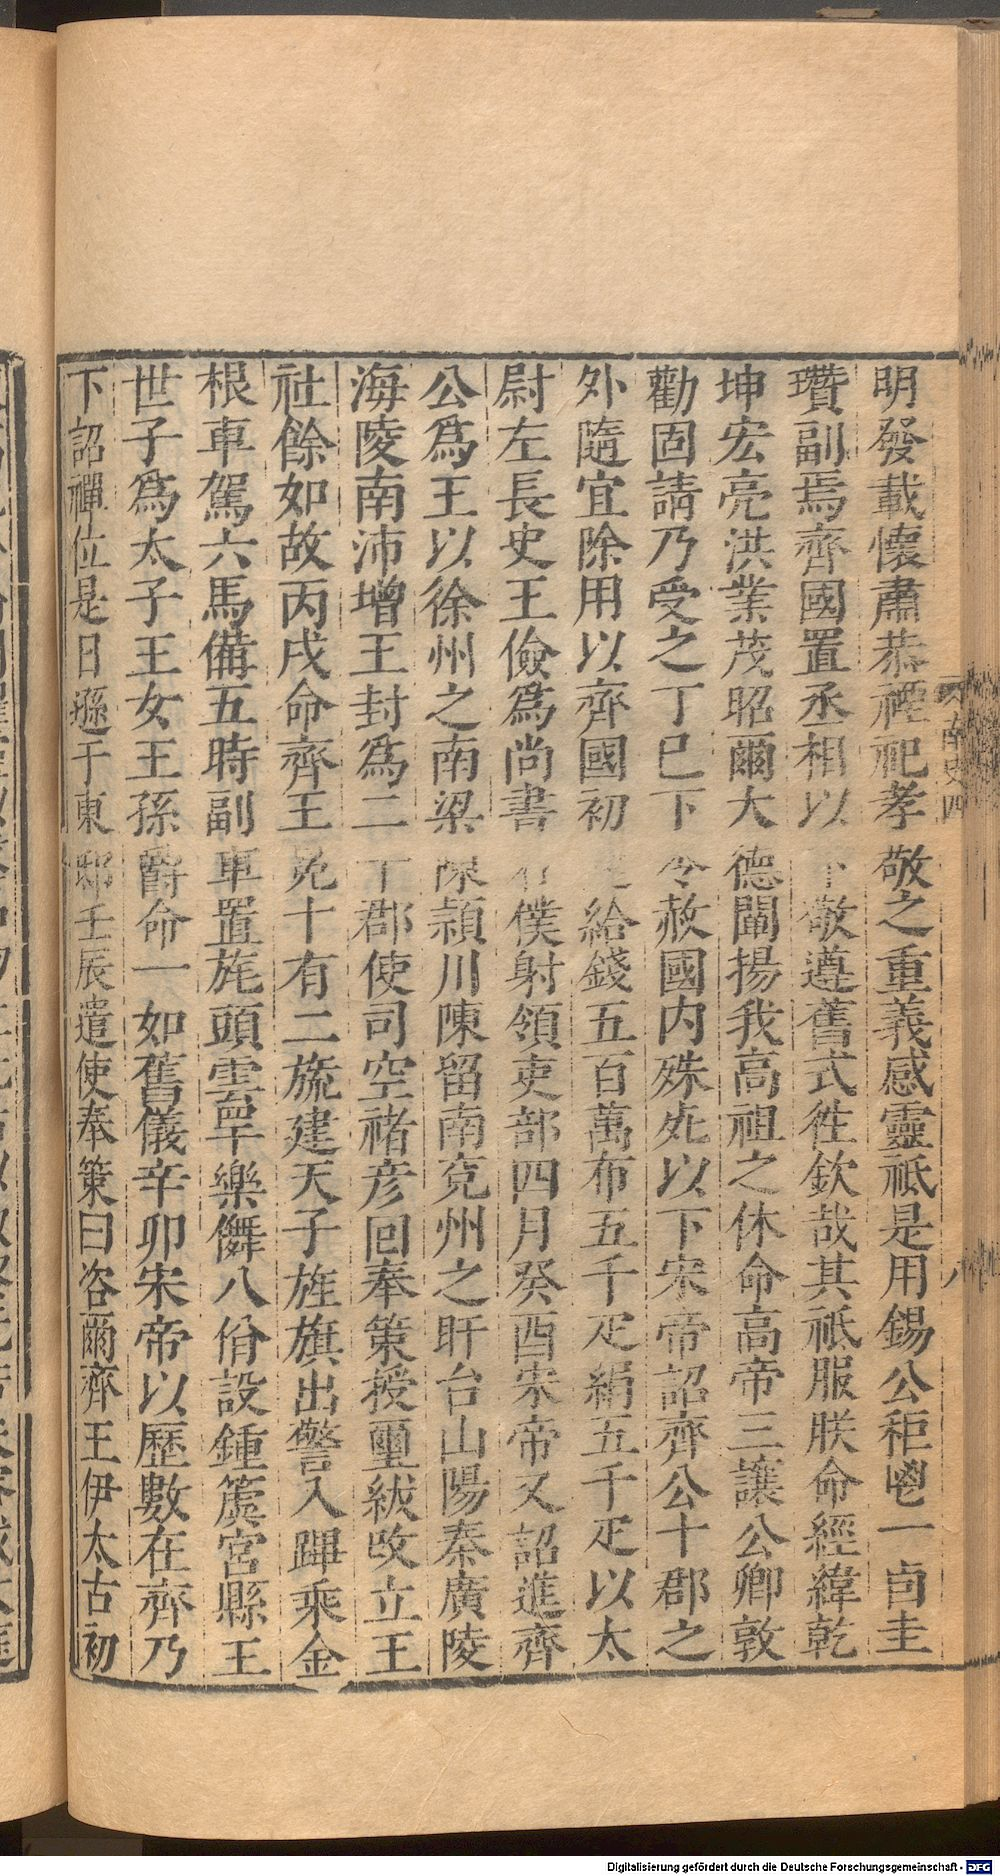 明發載懷肅恭禋祀孝敬之重義感靈祗是用錫公秬鬯一卣圭
瓚副焉齊國置丞相以下敬遵舊式徃欽哉其祗服朕命經緯乾
坤宏亮洪業茂昭爾大德闡揚我高祖之休命高帝三讓公卿敦
勸固請乃受之丁巳下令赦國内殊死以下宋帝詔齊公十郡之
外隨宜除用以齊國初 給錢五百萬布五千疋絹五千疋以太
尉左長史王儉爲尚書右僕射領吏部四月癸酉宋帝又詔進齊
公爲王以徐州之南梁陳潁川陳留南兗州之盱台山陽秦廣陵
海陵南沛增王封爲二十郡使司空褚彦回奉策授璽紱改立王
社餘如故丙戌命齊王冕十有二旒建天子旌旗出警入蹕乘金
根車駕六馬備五時副車置旄頭雲罕樂儛八佾設鍾簴宮縣王
世子爲太子王女王孫爵命一如舊儀辛卯宋帝以歷數在齊乃
下詔禪位是日遜于東邸壬辰遣使奉策曰咨爾齊王伊太古初
南史四
八
Digitalisierung gefördert durch die Deutsche Forschungsgemeinschaft - DFG